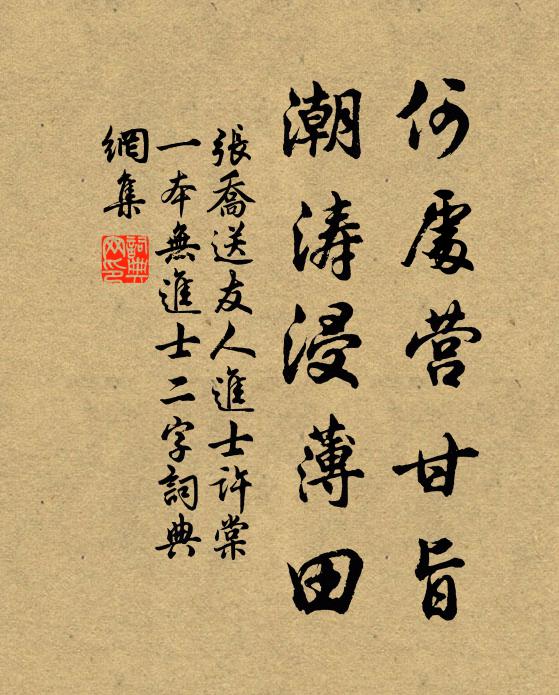 何處营甘旨
潮涛浸薄田
張喬送友人進士許棠
一本無進士二字詞典
網集
詞典网印